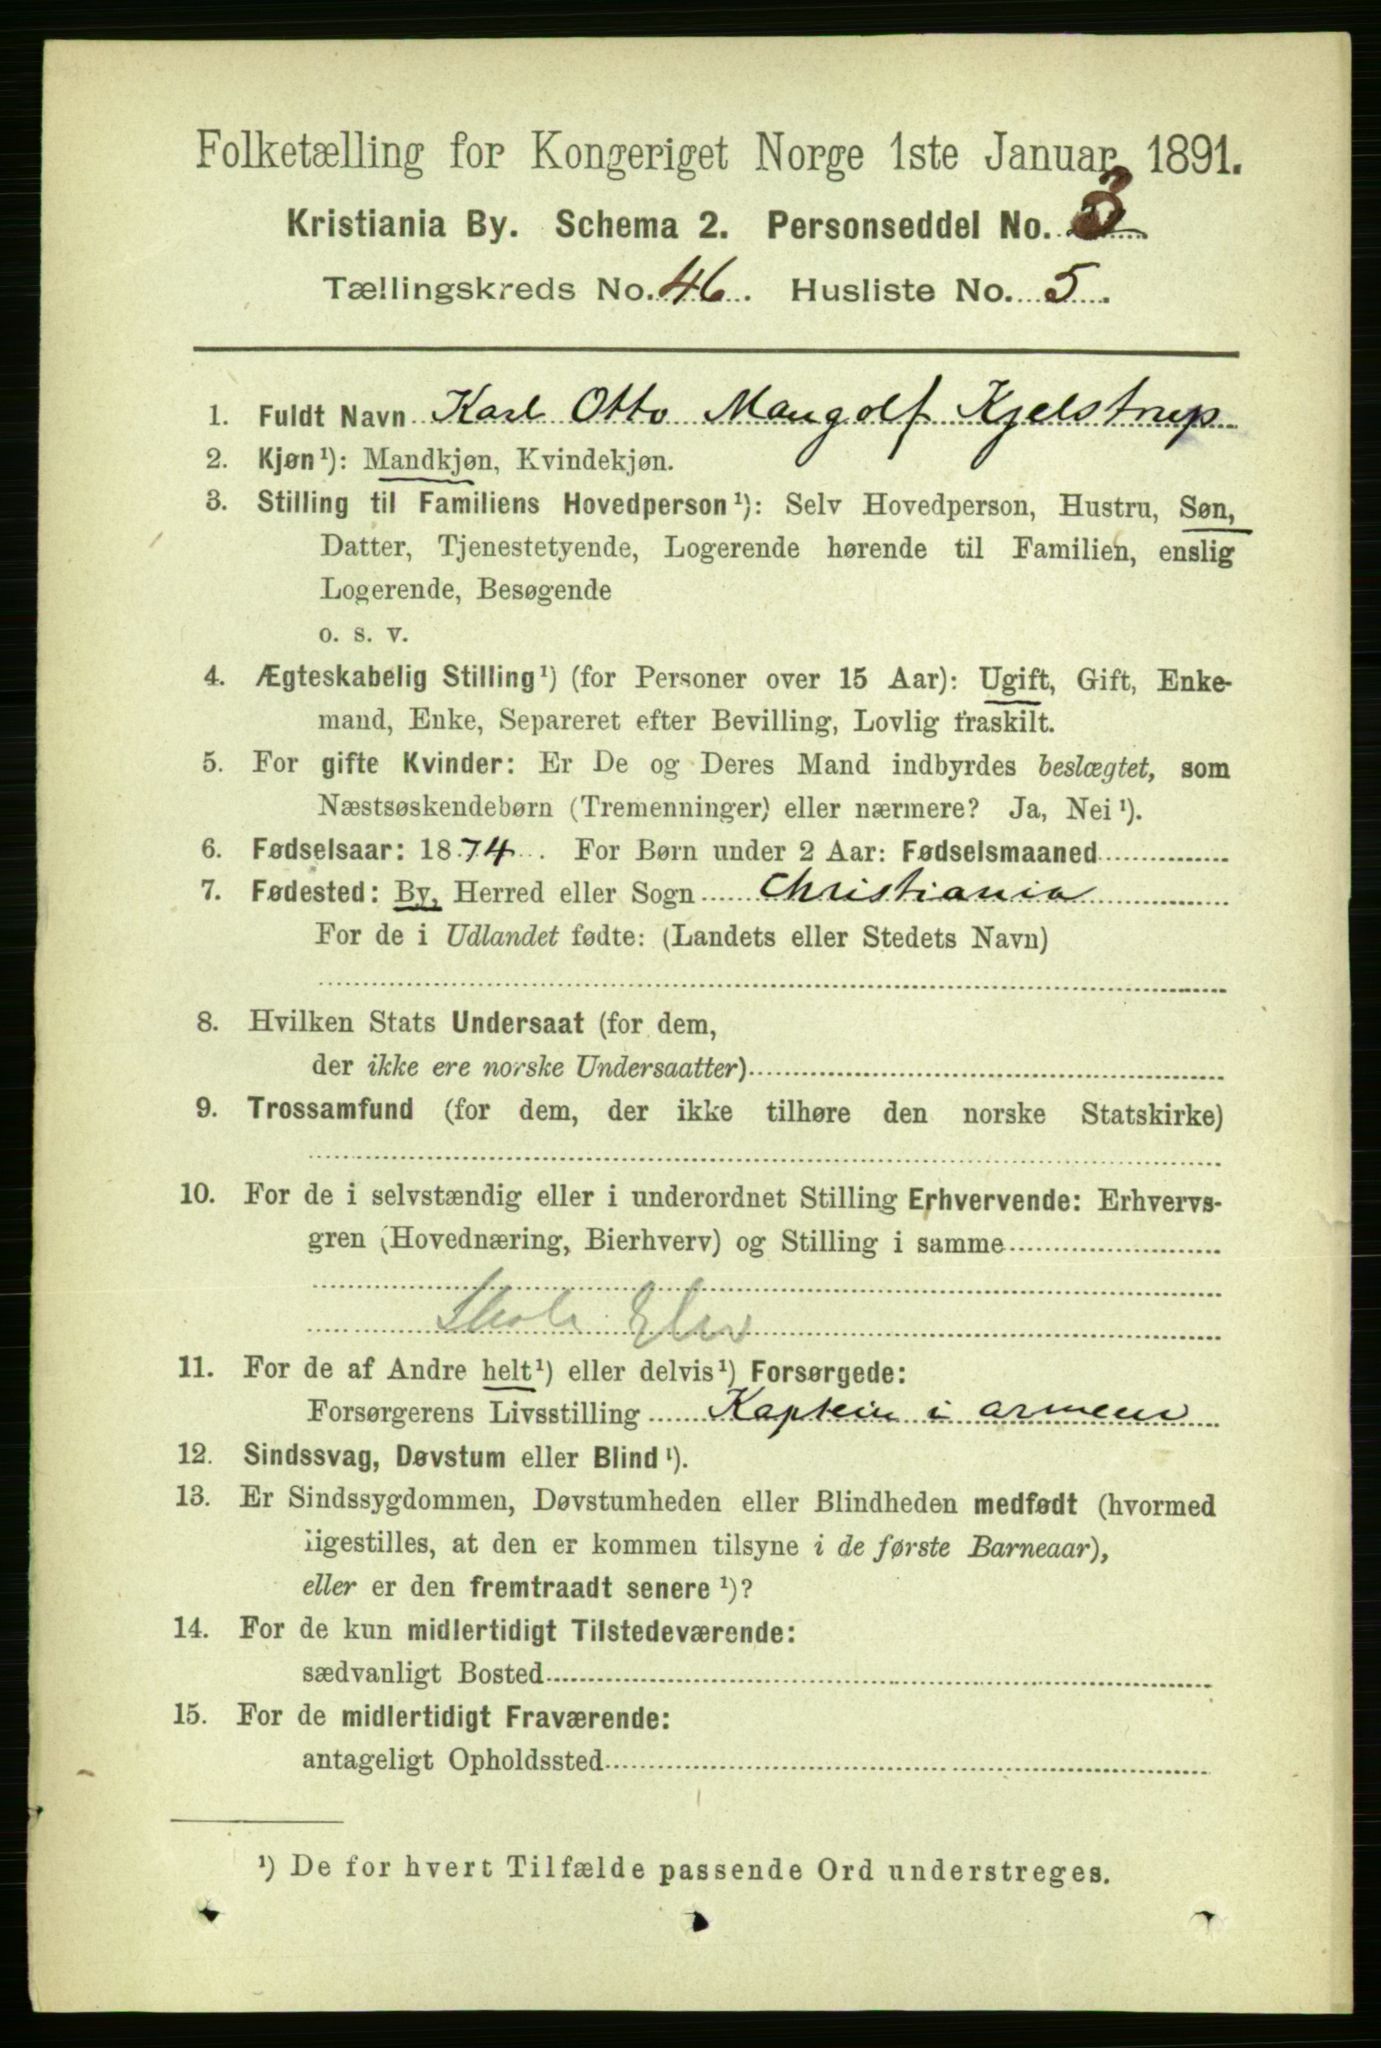 Folketælling for Kongeriget Norge 1ste Januar 1891.
Kristiania By. Schema 2. Personseddel No. 3
Tællingskreds No. 46. Husliste No. 5.
1. Fuldt Navn Karl Otto Mangolf Kjelstrup
2. Kjøn¹): Mandkjøn, Kvindekjøn.
3. Stilling til Familiens Hovedperson¹): Selv Hovedperson, Hustru, Søn,
Datter, Tjenestetyende, Logerende hørende til Familien, enslig
Logerende, Besøgende
o. s. v.
4. Ægteskabelig Stilling¹) (for Personer over 15 Aar): Ugift, Gift, Enke-
mand, Enke, Separeret efter Bevilling, Lovlig fraskilt.
5. For gifte Kvinder: Er De og Deres Mand indbyrdes beslægtet, som
Næstsøskendebørn (Tremenninger) eller nærmere? Ja, Nei¹).
6. Fødselsaar: 1874. For Børn under 2 Aar: Fødselsmaaned
7. Fødested: By, Herred eller Sogn Christiania
For de i Udlandet fødte: (Landets eller Stedets Navn)
8. Hvilken Stats Undersaat (for dem,
der ikke ere norske Undersaatter)
9. Trossamfund (for dem, der ikke tilhøre den norske Statskirke)
10. For de i selvstændig eller i underordnet Stilling Erhvervende: Erhvervs-
gren (Hovednæring, Bierhverv) og Stilling i samme
Skole Elev
11. For de af Andre helt¹) eller delvis¹) Forsørgede:
Forsørgerens Livsstilling Kaptein i armeen
12. Sindssvag, Døvstum eller Blind¹).
13. Er Sindssygdommen, Døvstumheden eller Blindheden medfødt (hvormed
ligestilles, at den er kommen tilsyne i de første Barneaar),
eller er den fremtraadt senere¹)?
14. For de kun midlertidigt Tilstedeværende:
sædvanligt Bosted
15. For de midlertidigt Fraværende:
antageligt Opholdssted
¹) De for hvert Tilfælde passende Ord understreges.